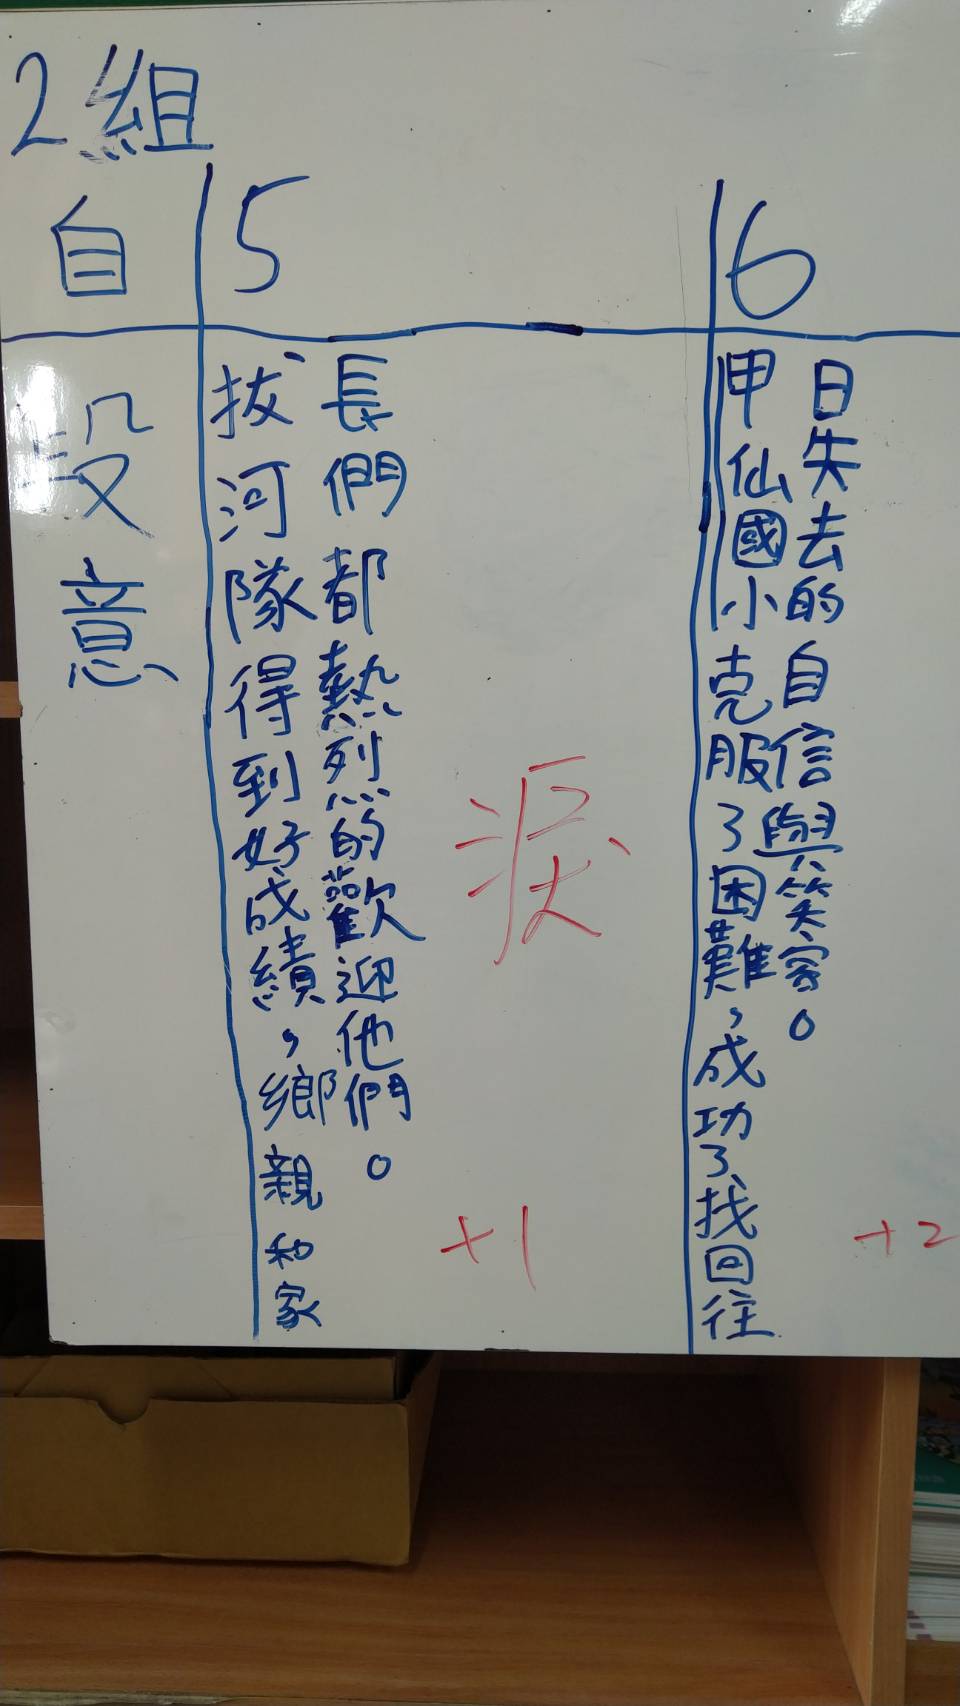 2組
自
5
6
段意
拔河隊得到好成績，鄉親和家
長們都熱烈的歡迎他們。
淚
+1
甲仙國小克服了困難，成功了找回往
日失去的自信與笑容。
+2